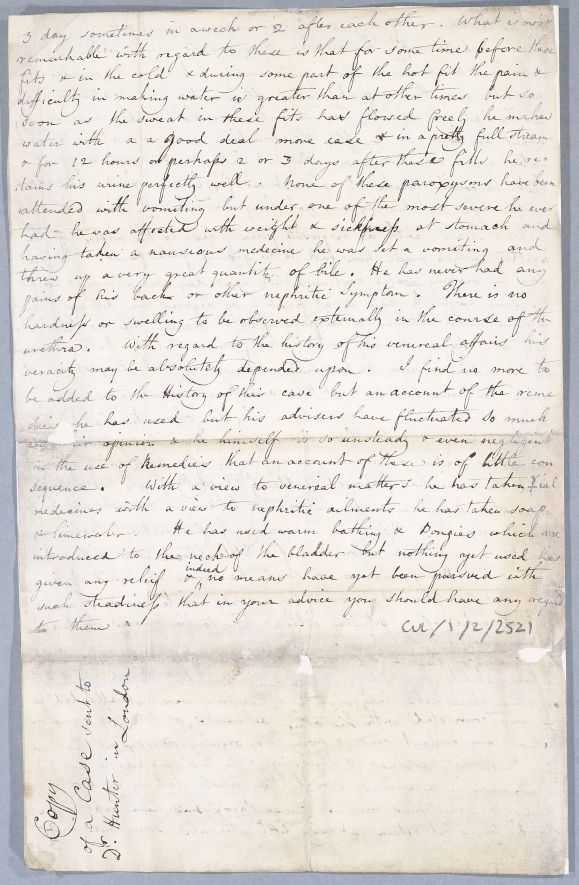 3 day sometimes in a week or 2 after each other. What is most
remarkable with regard to these is that for some time before these
fits & in the cold & during some part of the hot fit the pain &
difficulty in making water is greater than at other times but so
soon as the sweat in these fits has flowed freely he makes
water with a a good deal more ease & in a pretty full stream
& for 12 hours or perhaps 2 or 3 days after these fitts he re-
tains his urine perfectly well. None of these paroxysms have been
attended with vomiting but under one of the most severe he ever
had he was affected with weight & sickness at stomach and
having taken a nauseous medecine he was set a vomiting and
threw up a very great quantity of bile. He has never had any
pains of his back or other nephritic Symptom. There is no
hardness or swelling to be observed externally in the course of the
urethra. With regard to the history of his venereal affairs his
veracity may be absolutely depended upon. I find no more to
be added to the History of this case but an account of the reme
dies he has used but his advisers have fluctuated so much
in opinion & he himself is so unsteady & even negligent
in the use of Remedies that an account of these is of little con
sequence. With a view to venereal matters he has taken
medecines with a view to nephritic ailments he has taken soap
& limewater. He has used warm bathing & Bougies which are
introduced to the neck of the bladder but nothing yet used has
given any releif & indeed no means have yet been pursued with
such steadiness that in your advice you should have any regard
to them
CUL/1/2/2521
Copy
of a Case sent to
Dr. Hunter in London